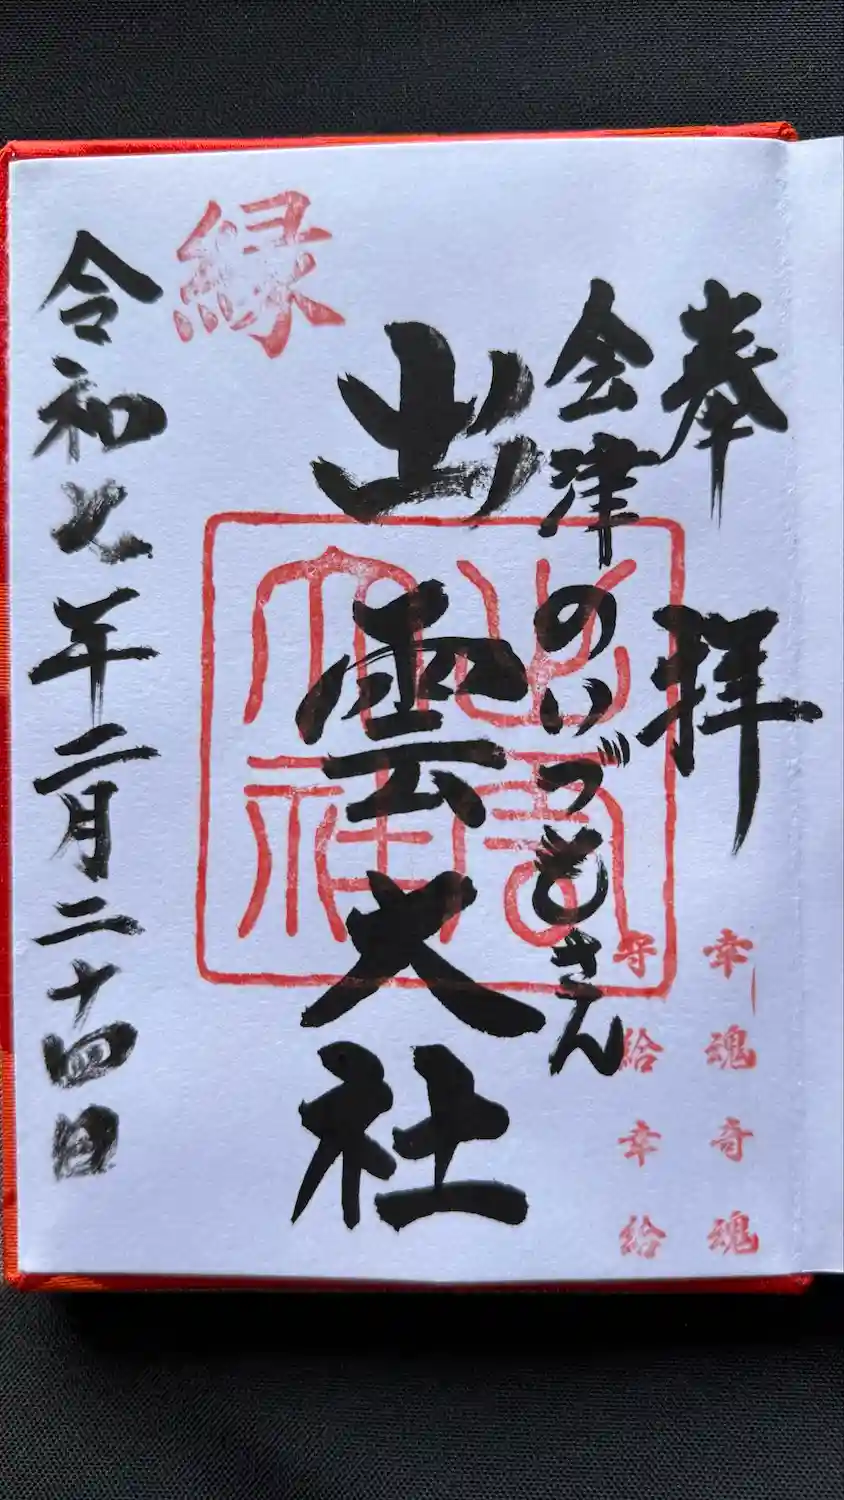 奉拝
会津のいづもさん
出雲大社
縁
令和七年二月二十四日
出雲
大社
幸魂奇魂
守給幸給